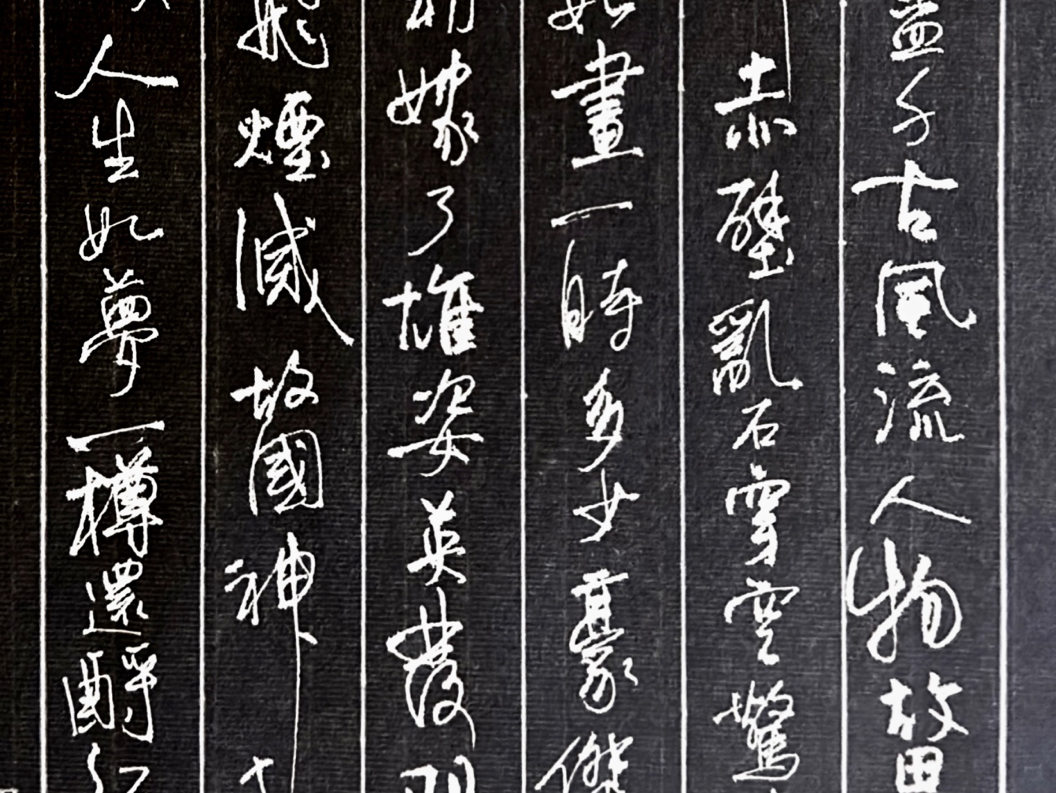 盡千古風流人物故
赤壁亂石穿空驚
如畫一時多少豪傑
初嫁了雄姿英發羽
飛煙滅故國神
人生如夢一樽還酹江